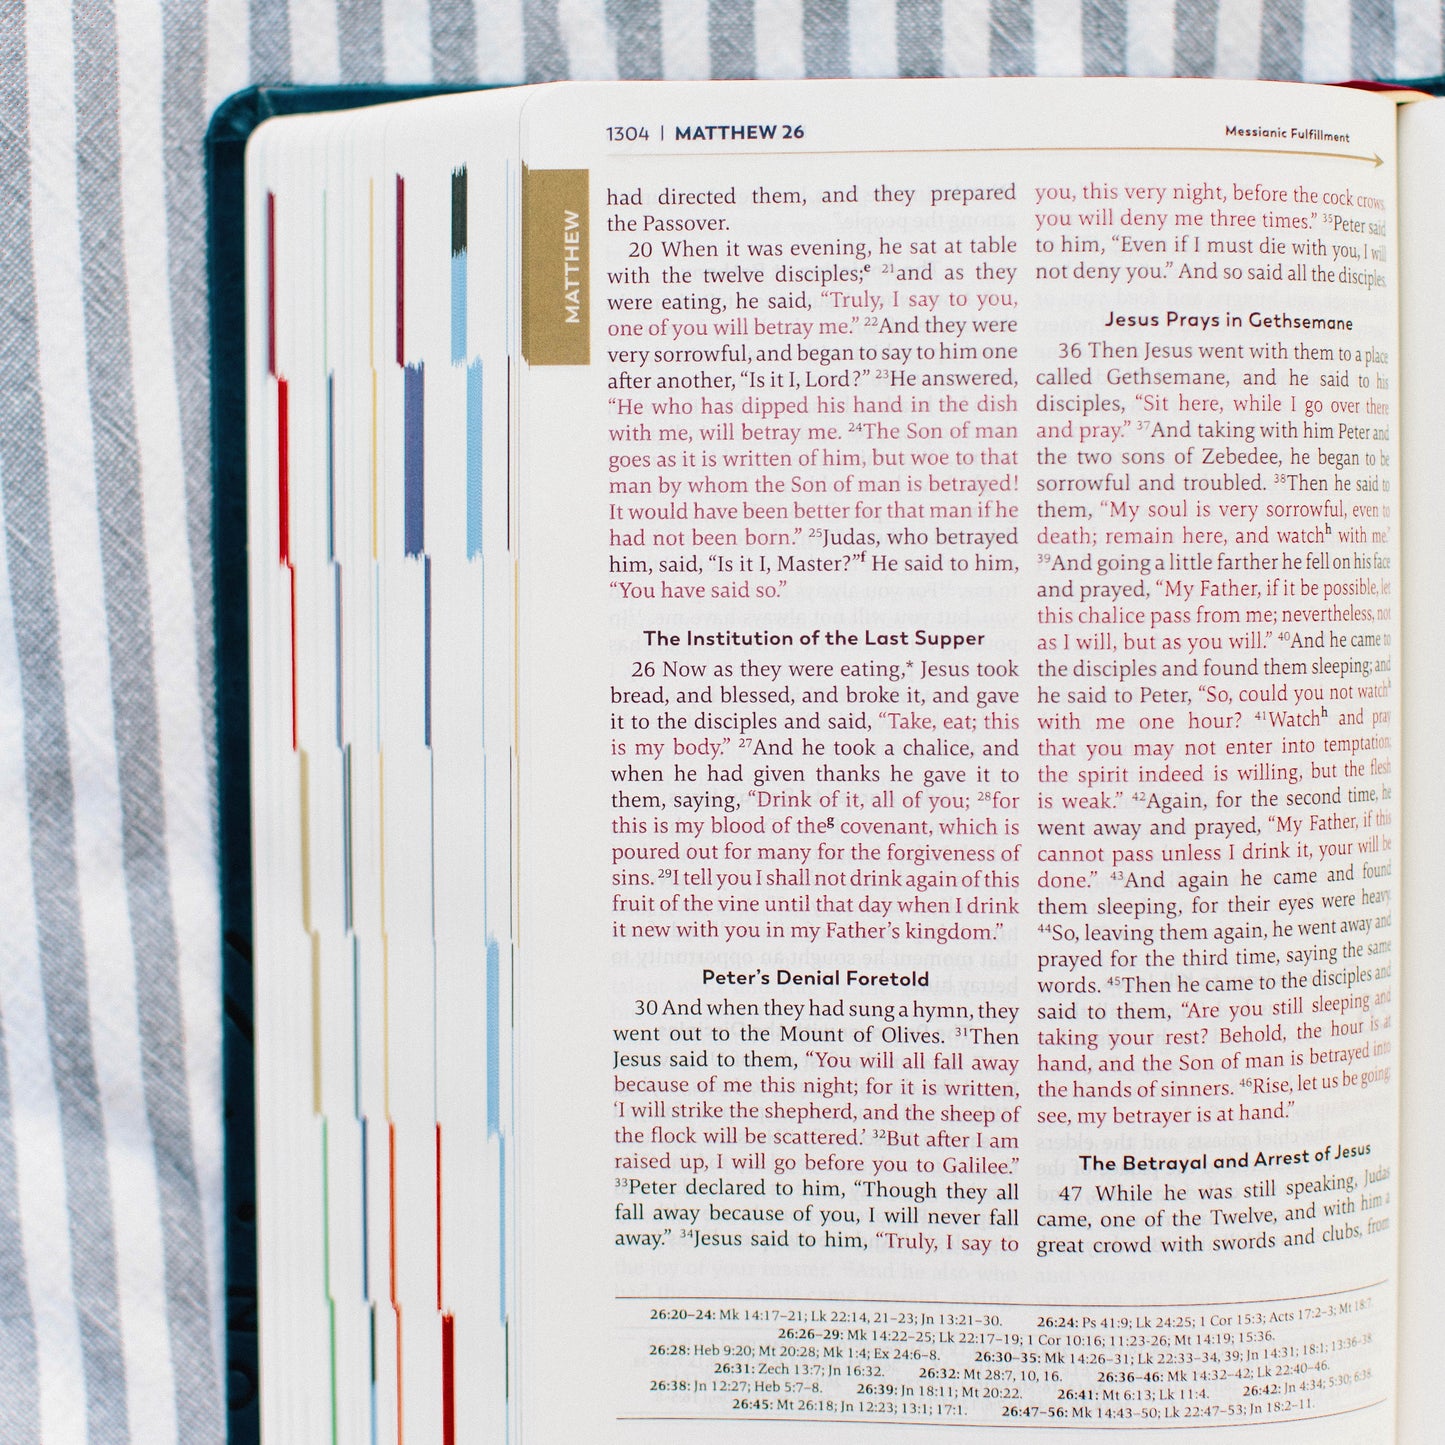 1304 | MATTHEW 26
Messianic Fulfillment
MATTHEW
had directed them, and they prepared
the Passover.
20 When it was evening, he sat at table
with the twelve disciples;ᵉ ²¹and as they
were eating, he said, “Truly, I say to you,
one of you will betray me.” ²²And they were
very sorrowful, and began to say to him one
after another, “Is it I, Lord?” ²³He answered,
“He who has dipped his hand in the dish
with me, will betray me. ²⁴The Son of man
goes as it is written of him, but woe to that
man by whom the Son of man is betrayed!
It would have been better for that man if he
had not been born.” ²⁵Judas, who betrayed
him, said, “Is it I, Master?”ᶠ He said to him,
“You have said so.”
The Institution of the Last Supper
26 Now as they were eating,* Jesus took
bread, and blessed, and broke it, and gave
it to the disciples and said, “Take, eat; this
is my body.” ²⁷And he took a chalice, and
when he had given thanks he gave it to
them, saying, “Drink of it, all of you; ²⁸for
this is my blood of theᵍ covenant, which is
poured out for many for the forgiveness of
sins. ²⁹I tell you I shall not drink again of this
fruit of the vine until that day when I drink
it new with you in my Father’s kingdom.”
Peter’s Denial Foretold
30 And when they had sung a hymn, they
went out to the Mount of Olives. ³¹Then
Jesus said to them, “You will all fall away
because of me this night; for it is written,
‘I will strike the shepherd, and the sheep of
the flock will be scattered.’ ³²But after I am
raised up, I will go before you to Galilee.”
³³Peter declared to him, “Though they all
fall away because of you, I will never fall
away.” ³⁴Jesus said to him, “Truly, I say to
you, this very night, before the cock crows,
you will deny me three times.” ³⁵Peter said
to him, “Even if I must die with you, I will
not deny you.” And so said all the disciples.
Jesus Prays in Gethsemane
36 Then Jesus went with them to a place
called Gethsemane, and he said to his
disciples, “Sit here, while I go over there
and pray.” ³⁷And taking with him Peter and
the two sons of Zebedee, he began to be
sorrowful and troubled. ³⁸Then he said to
them, “My soul is very sorrowful, even to
death; remain here, and watchʰ with me.”
³⁹And going a little farther he fell on his face
and prayed, “My Father, if it be possible, let
this chalice pass from me; nevertheless, not
as I will, but as you will.” ⁴⁰And he came to
the disciples and found them sleeping; and
he said to Peter, “So, could you not watchʰ
with me one hour? ⁴¹Watchʰ and pray
that you may not enter into temptation;
the spirit indeed is willing, but the flesh
is weak.” ⁴²Again, for the second time, he
went away and prayed, “My Father, if this
cannot pass unless I drink it, your will be
done.” ⁴³And again he came and found
them sleeping, for their eyes were heavy.
⁴⁴So, leaving them again, he went away and
prayed for the third time, saying the same
words. ⁴⁵Then he came to the disciples and
said to them, “Are you still sleeping and
taking your rest? Behold, the hour is at
hand, and the Son of man is betrayed into
the hands of sinners. ⁴⁶Rise, let us be going;
see, my betrayer is at hand.”
The Betrayal and Arrest of Jesus
47 While he was still speaking, Judas
came, one of the Twelve, and with him a
great crowd with swords and clubs, from
26:20–24: Mk 14:17–21; Lk 22:14, 21–23; Jn 13:21–30. 26:24: Ps 41:9; Lk 24:25; 1 Cor 15:3; Acts 17:2–3; Mt 18:7.
26:26–29: Mk 14:22–25; Lk 22:17–19; 1 Cor 10:16; 11:23-26; Mt 14:19; 15:36.
26:28: Heb 9:20; Mt 20:28; Mk 1:4; Ex 24:6–8. 26:30–35: Mk 14:26–31; Lk 22:33–34, 39; Jn 14:31; 18:1; 13:36–38.
26:31: Zech 13:7; Jn 16:32. 26:32: Mt 28:7, 10, 16. 26:36–46: Mk 14:32–42; Lk 22:40–46.
26:38: Jn 12:27; Heb 5:7–8. 26:39: Jn 18:11; Mt 20:22. 26:41: Mt 6:13; Lk 11:4. 26:42: Jn 4:34; 5:30; 6:38.
26:45: Mt 26:18; Jn 12:23; 13:1; 17:1. 26:47–56: Mk 14:43–50; Lk 22:47–53; Jn 18:2–11.